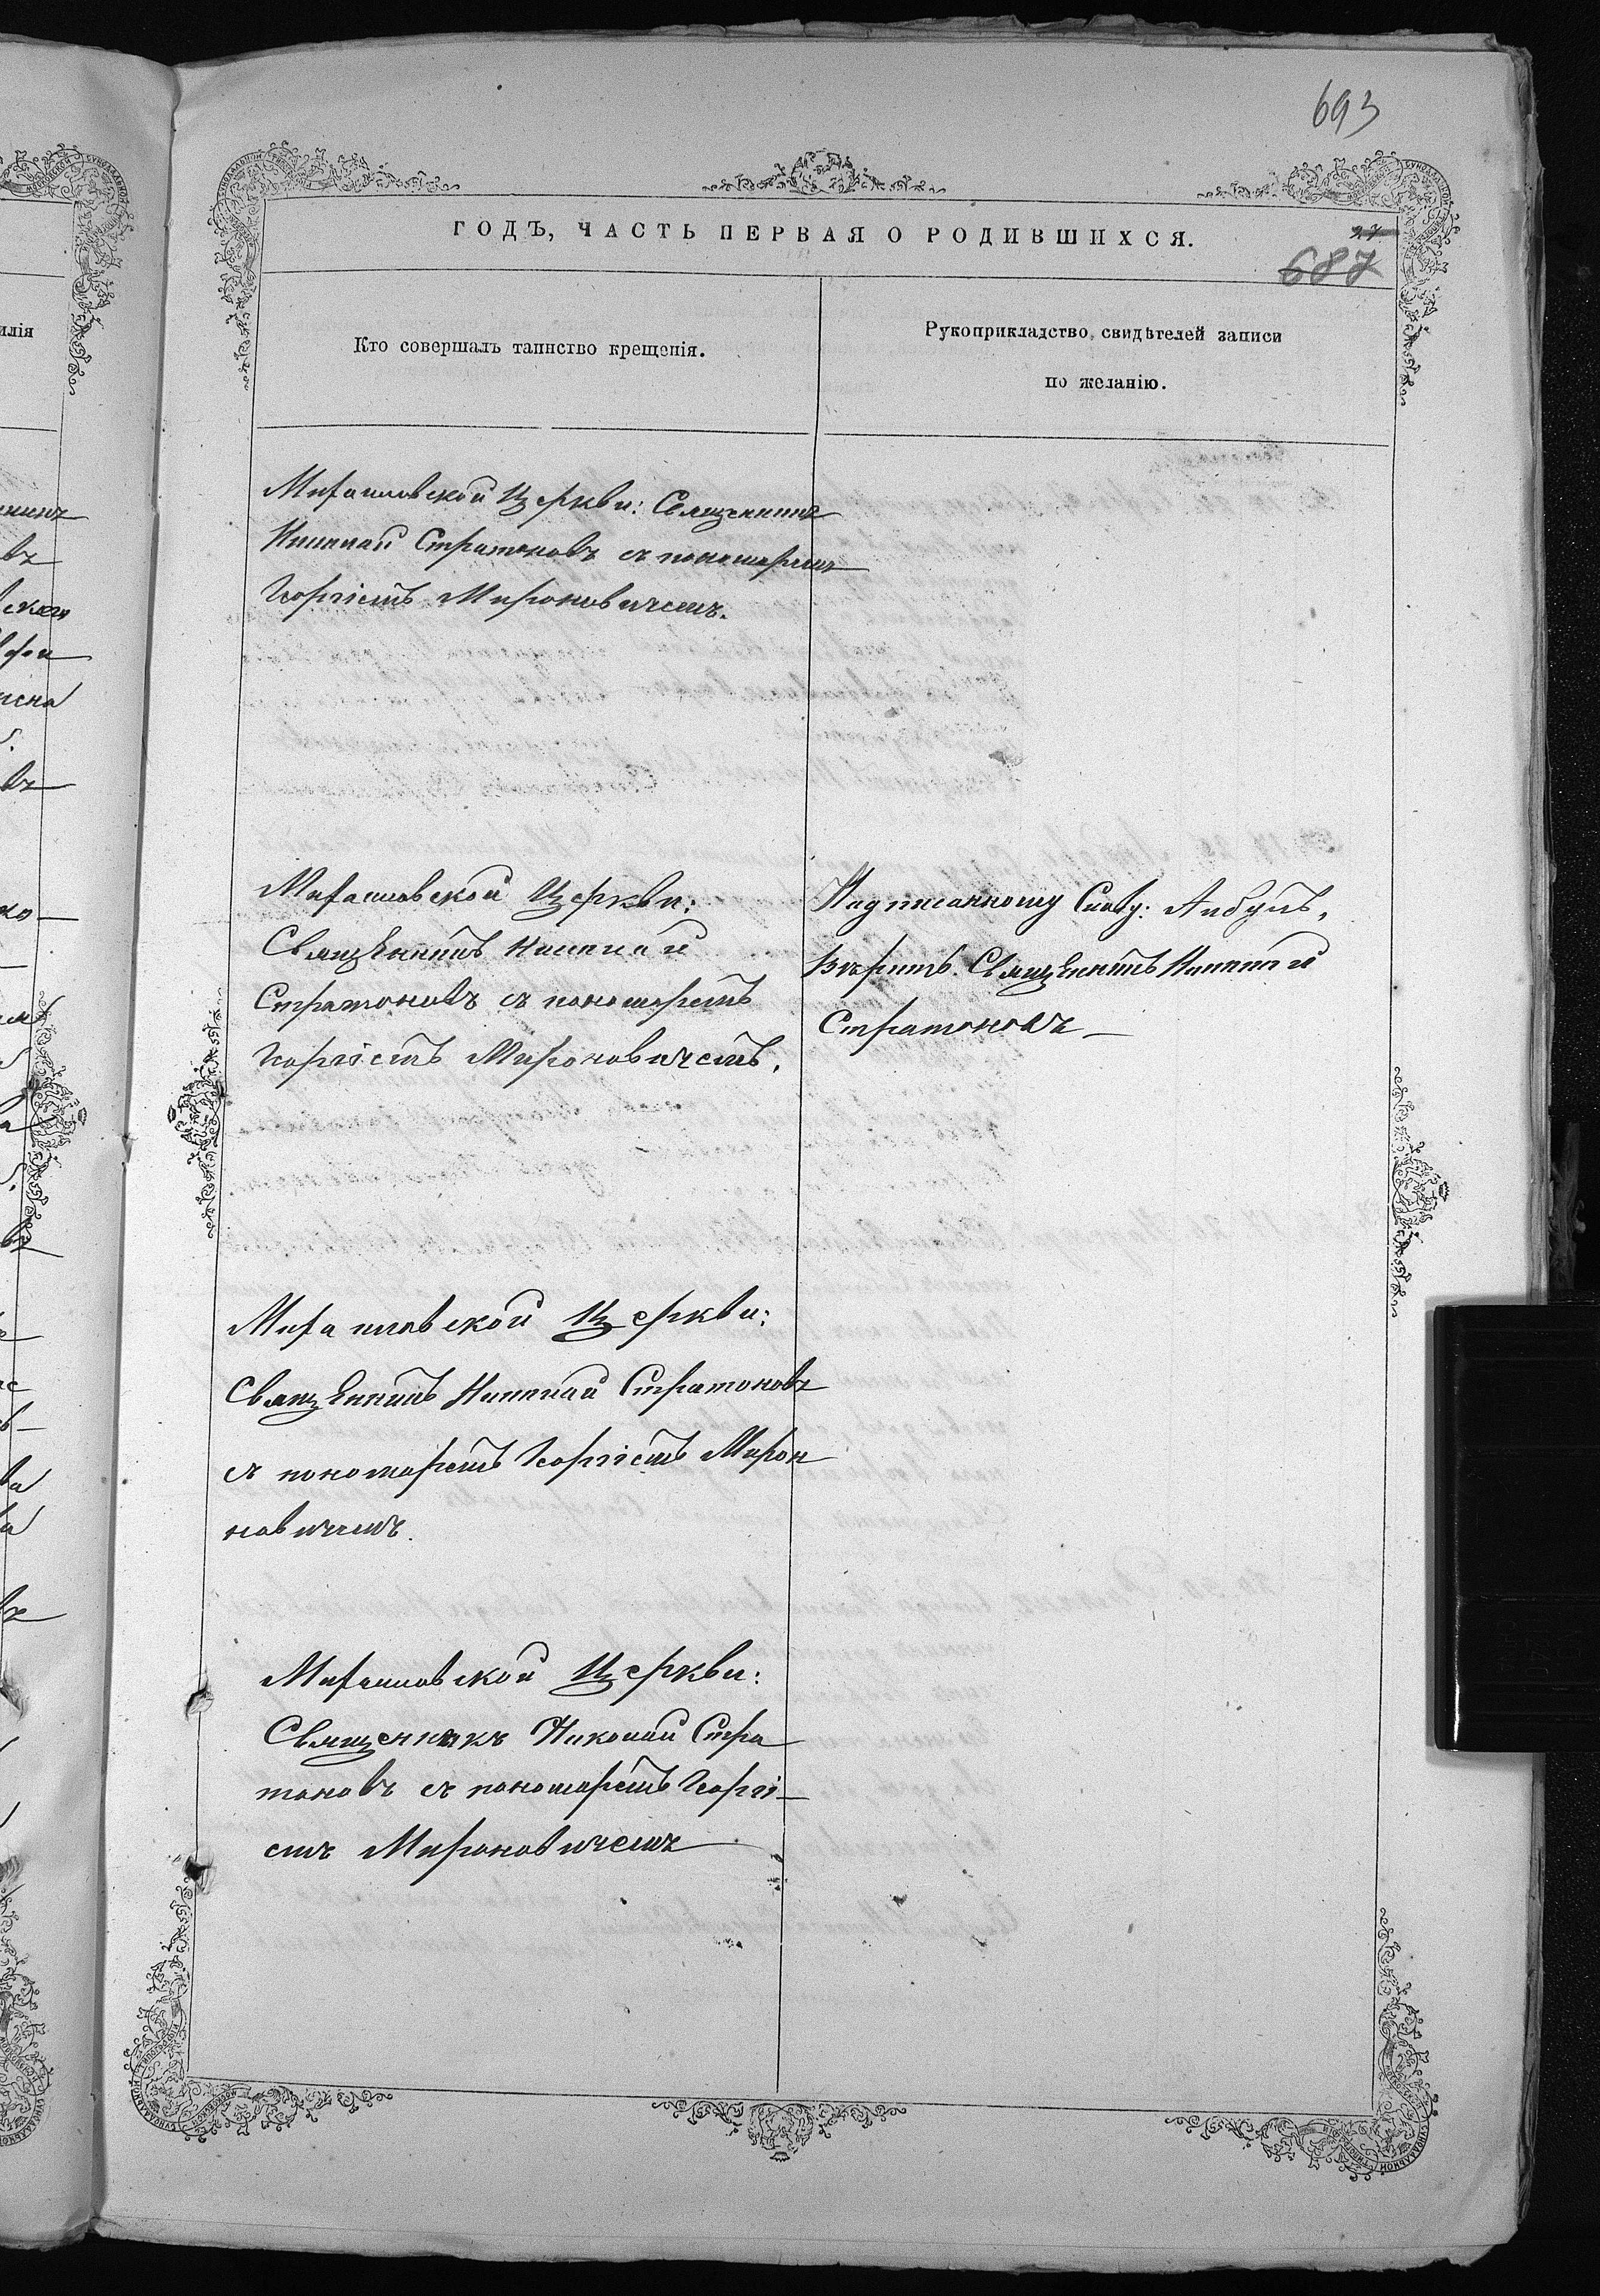 693
ГОДЪ, ЧАСТЬ ПЕРВАЯ О РОДИВШИХСЯ.
27
687
Кто совершалъ таинство крещенія.
Рукоприкладство свидѣтелей записи
по желанію.
Михаиловской Церкви: Священникъ
Николай Стратоновъ съ пономаремъ
Георгіемъ Мироновичемъ.
Михаиловской Церкви:
Священникъ Николай
Стратоновъ съ пономаремъ
Георгіемъ Мироновичемъ.
Надписанному Священникъ Николай
Стратоновъ
Михаиловской Церкви:
Священникъ Николай Стратоновъ
съ пономаремъ Георгіемъ Миро
новичемъ.
Михаиловской Церкви:
Священникъ Николай Стра
тоновъ съ пономаремъ Георгі-
емъ Мироновичемъ
илія